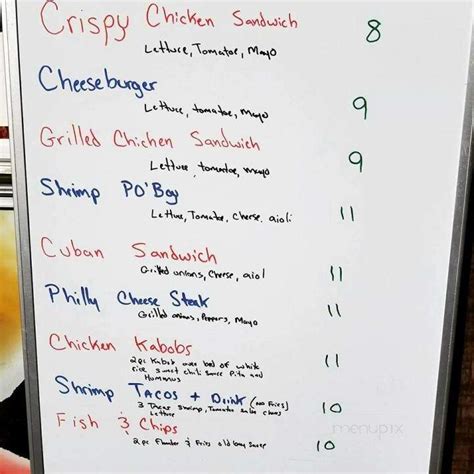 Crispy Chicken Sandwich 8
Lettuce, Tomatoe, Mayo
Cheeseburger
Lettuce, tomatoe, mayo 9
Grilled Chicken Sandwich
Lettuce, tomatoe, mayo 9
Shrimp PO'Boy
Lettuce, Tomatoe, cheese, aioli 11
Cuban Sandwich
Grilled onions, cheese, aiol 11
Philly Cheese Steak
Grilled onions, Peppers, Mayo 11
Chicken Kabobs
2 pc Kabob over bed of white 11
rice sweet chili sauce Pita and
Hommus
Shrimp Tacos + Drink (no Fries)
3 Tacos Shrimp, Tomatoe salsa 10
Lettuce
Fish & Chips
2 pc Flounder & Fries old bay sauce 10
menupix